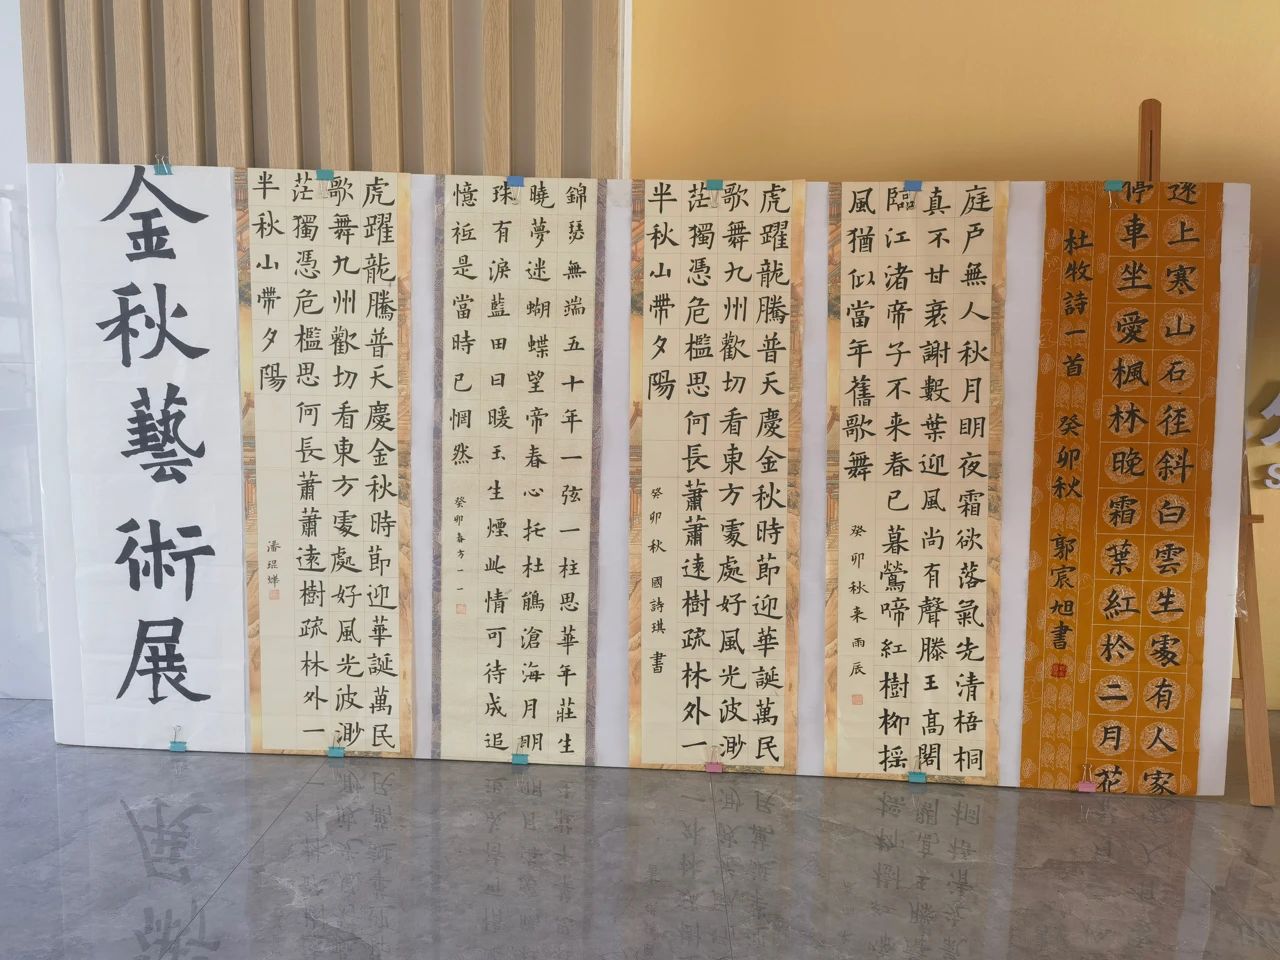 金秋藝術展
虎躍龍騰普天慶金秋時節迎華誕萬民
歌舞九州歡切看東方處處好風光波渺
茫獨憑危檻思何長蕭蕭遠樹疏林外一
半秋山帶夕陽
潘琨燁
錦瑟無端五十年一弦一柱思華年莊生
曉夢迷蝴蝶望帝春心托杜鵑滄海月明
珠有淚藍田日暖玉生煙此情可待成追
憶祗是當時已惘然
癸卯春方一一
虎躍龍騰普天慶金秋時節迎華誕萬民
歌舞九州歡切看東方處處好風光波渺
茫獨憑危檻思何長蕭蕭遠樹疏林外一
半秋山帶夕陽
癸卯秋 國詩琪 書
庭戶無人秋月明夜霜欲落氣先清梧桐
真不甘衰謝數葉迎風尚有聲滕王高閣
臨江渚帝子不来春已暮鶯啼紅樹柳摇
風猶似當年舊歌舞
癸卯秋来雨辰
遠上寒山石径斜白雲生處有人家
停車坐愛楓林晚霜葉紅於二月花
杜牧詩一首 癸卯秋 郭宸旭書